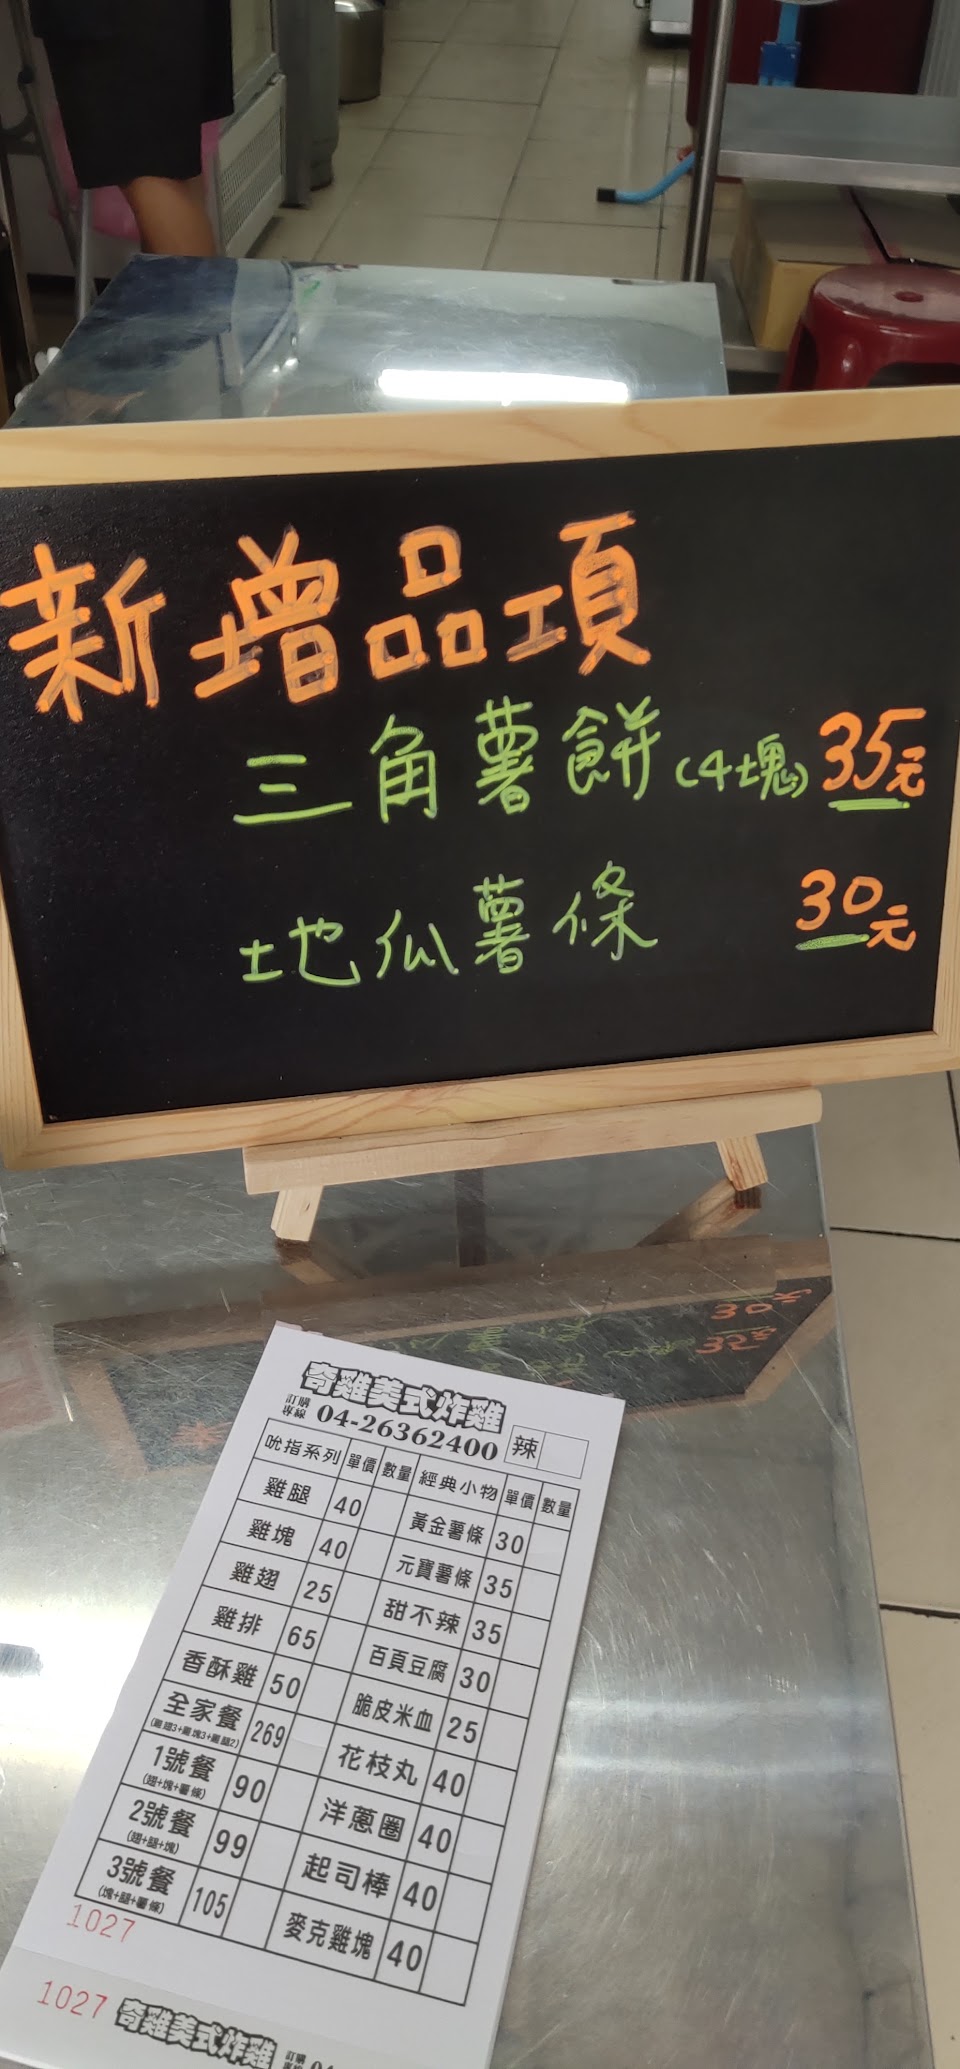 新增品項
三角薯餅(4塊) 35元
地瓜薯條 30元
奇雞美式炸雞
訂購專線 04-26362400 辣
吮指系列 單價 數量 經典小物 單價 數量
雞腿 40 黃金薯條 30
雞塊 40 元寶薯條 35
雞翅 25 甜不辣 35
雞排 65 百頁豆腐 30
香酥雞 50 脆皮米血 25
全家餐 269 花枝丸 40
(雞翅3+雞塊3+雞腿2)
1號餐 90 洋蔥圈 40
(翅+塊+薯條)
2號餐 99 起司棒 40
(翅+腿+塊)
3號餐 105 麥克雞塊 40
(塊+腿+薯條)
1027
1027 奇雞美式炸雞 訂購專線 04